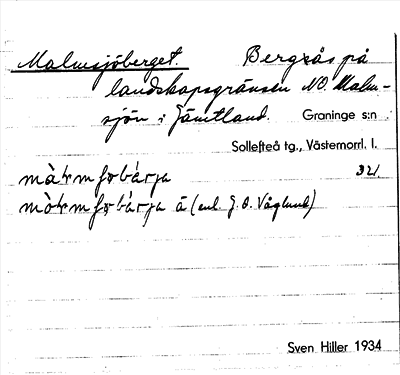 Malmsjöberget. Bergsås på
landskapsgränsen NO. Malm-
sjön i Jämtland. Graninge s:n
Sollefteå tg., Västernorrl. l.
32/.
å (enl. J. O. Våglund)
Sven Hiller 1934